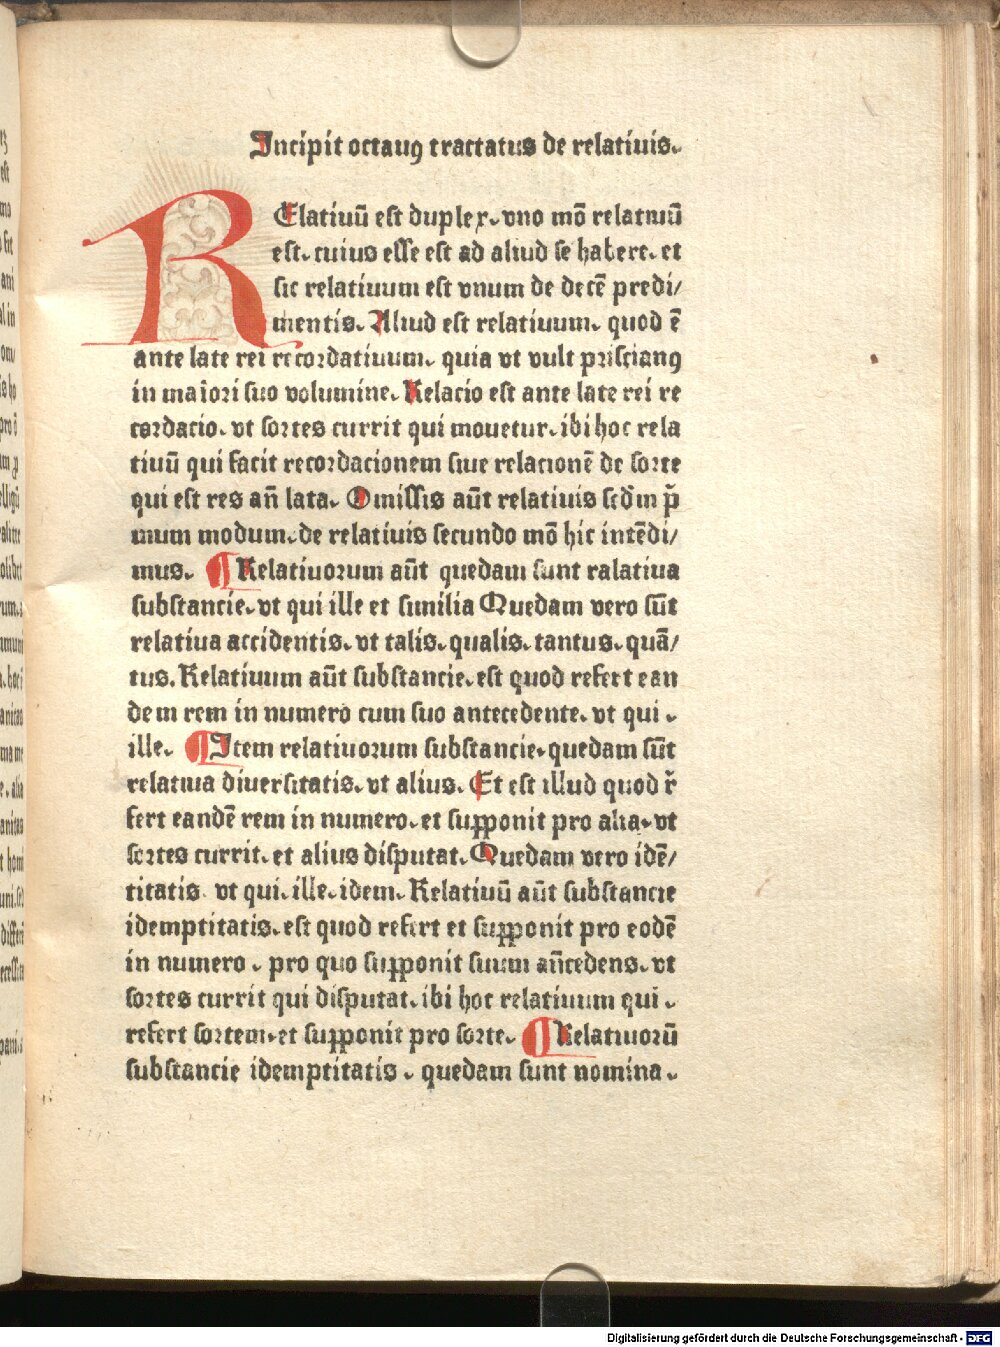 Incipit octauꝰ tractatus de relatiuis.
RElatiuū est duplex. vno mō relatiuū
est. cuius esse est ad aliud se habere. et
sic relatiuum est vnum de decē predi/
mentis. Aliud est relatiuum. quod ē
ante late rei recordatiuum. quia vt vult prisciaꝰ
in maiori suo volumine. Relacio est ante late rei re
cordacio. vt sortes currit qui mouetur. ibi hoc rela
tiuū qui facit recordacionem siue relacionē de sorte
qui est res an̄ lata. Omissis aūt relatiuis scd̄m p̄
mum modum. de relatiuis secundo mō hic intēdi/
mus. ¶ Relatiuorum aūt quedam sunt ralatiua
substancie. vt qui ille et similia Quedam vero sūt
relatiua accidentis. vt talis. qualis. tantus. quā/
tus. Relatiuum aūt substancie. est quod refert ean
dem rem in numero cum suo antecedente. vt qui .
ille. ¶ Item relatiuorum substancie. quedam sūt
relatiua diuersitatis. vt alius. Et est illud quod r̄
fert eandē rem in numero. et supponit pro alia. vt
sortes currit. et alius disputat. Quedam vero idē/
titatis. vt qui. ille. idem. Relatiuū aūt substancie
idemptitatis. est quod refert et supponit pro eodē
in numero . pro quo supponit suum an̄cedens. vt
sortes currit qui disputat. ibi hoc relatiuum qui .
refert sortem. et supponit pro sorte. ¶ Relatiuorū
substancie idemptitatis . quedam sunt nomina .
Digitalisierung gefördert durch die Deutsche Forschungsgemeinschaft - DFG